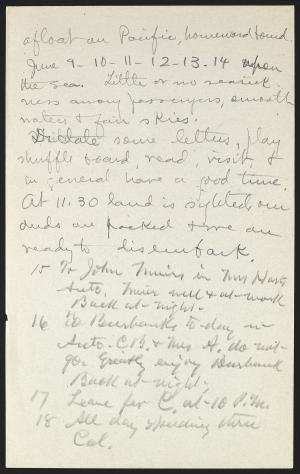 afloat on Pacific, homeward bound.
June 9 - 10 - 11 - 12 - 13 - 14 upon
the sea. Little or no seasick
ness among passengers, smooth
waters & fair skies.
Dictate some letters, play
shuffle board, read, visit, &
in general have a good time.
At 11.30 land is sighted, our
duds are packed & we are
ready to disembark.
15 To John Muirs in Mrs Harts
Auto. Muir well & at work
Back at night.
16 To Burbanks to-day in
Auto. C.B. & Mrs A. do not
go. Greatly enjoy Burbank
Back at night.
17 Leave for C. at 10 P.M.
18 All day speeding thru
Cal.